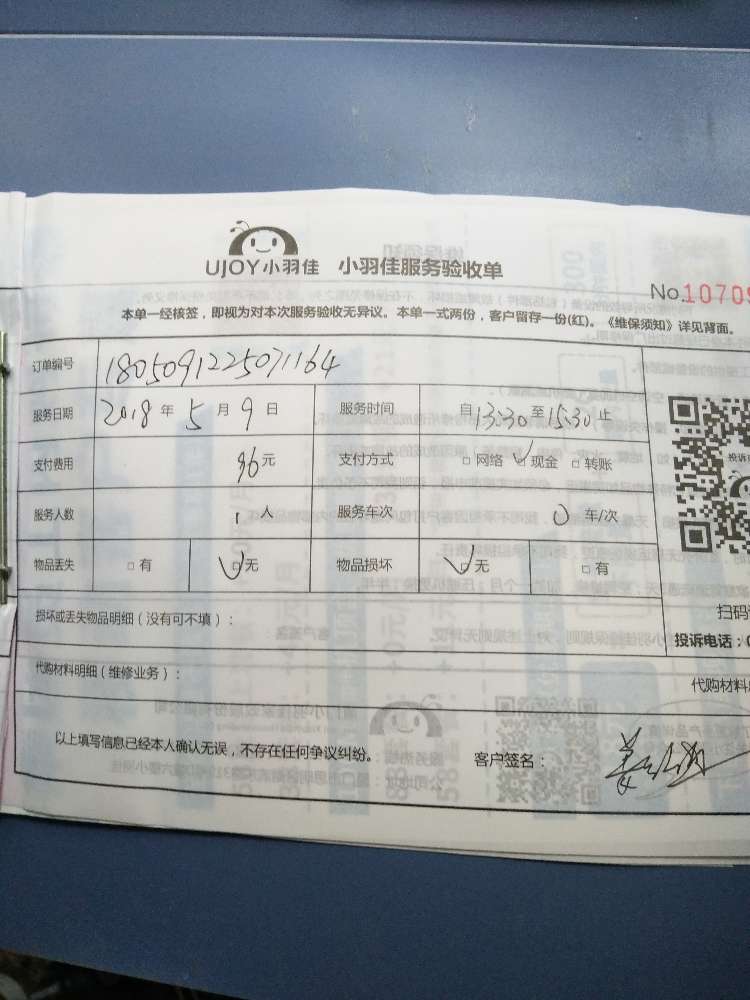 UJOY小羽佳 小羽佳服务验收单
No.10709
本单一经核签，即视为对本次服务验收无异议。本单一式两份，客户留存一份(红)。《维保须知》详见背面。
订单编号 1805091225071164
服务日期 2018 年 5 月 9 日 服务时间 自 13:30 至 15:30 止
支付费用 96 元 支付方式 □ 网络 ✓ 现金 □ 转账
服务人数 1 人 服务车次 0 车/次
物品丢失 □ 有 ✓□ 无 物品损坏 ✓□ 无 □ 有
损坏或丢失物品明细（没有可不填）：
扫码
投诉电话：0
代购材料明细（维修业务）：
代购材料
以上填写信息已经本人确认无误，不存在任何争议纠纷。
客户签名：